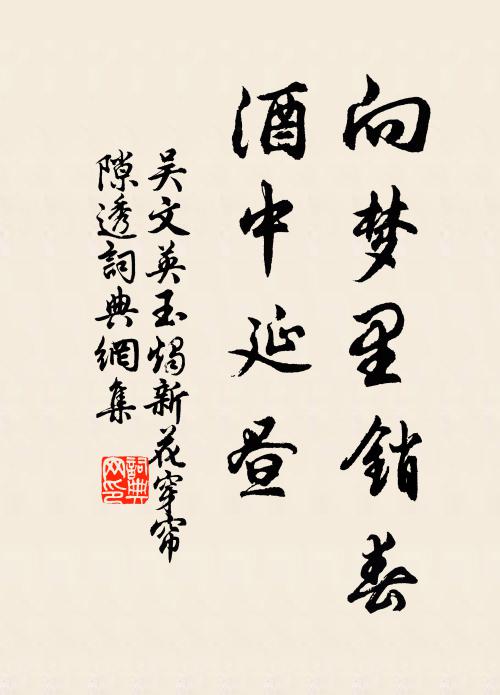 向梦里销春
酒中延昼
吴文英玉烛新花穿帘
隙透詞典網集
詞典网印